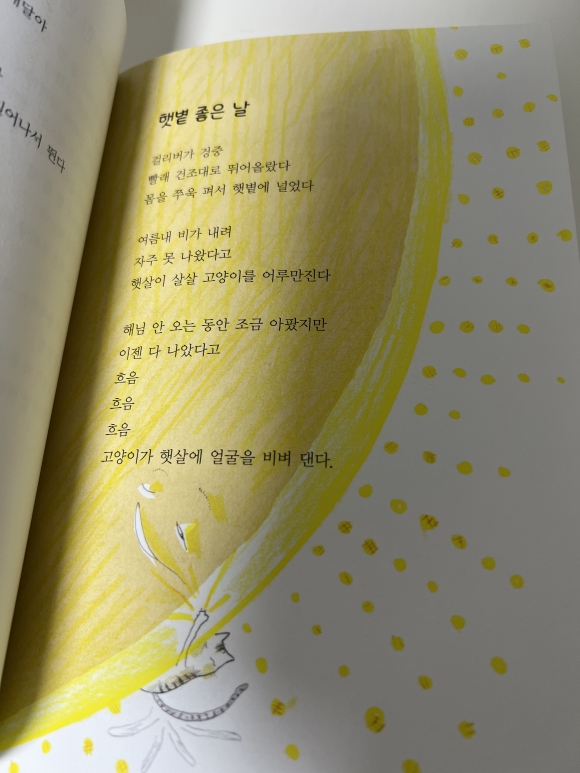 햇볕 좋은 날
걸리버가 겅중
빨래 건조대로 뛰어올랐다
몸을 쭈욱 펴서 햇볕에 널었다
여름내 비가 내려
자주 못 나왔다고
햇살이 살살 고양이를 어루만진다
해님 안 오는 동안 조금 아팠지만
이젠 다 나았다고
흐음
흐음
흐음
고양이가 햇살에 얼굴을 비벼 댄다.